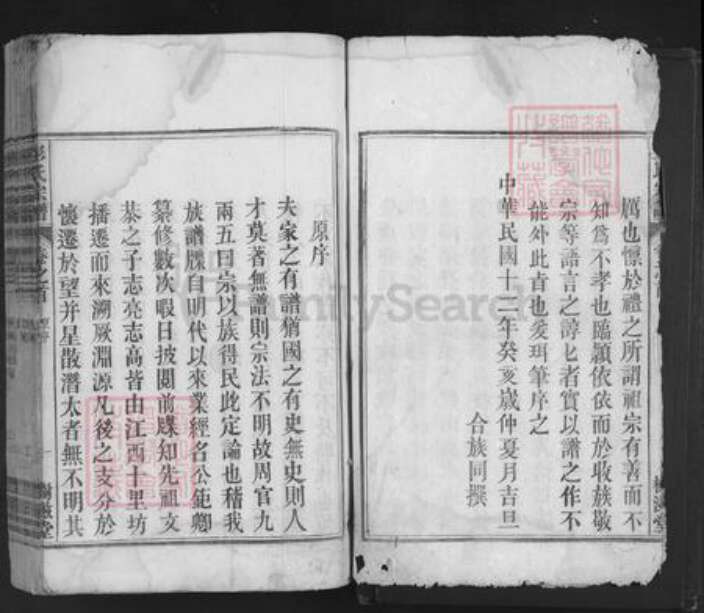 厲也懍於禮之所謂祖宗有善而不
知爲不孝也臨穎依依而於收族敬
宗等語言之諄匕者實以譜之作不
能外此旨也爰珥筆序之
中華民國十二年癸亥歲仲夏月吉旦
合族同撰
原序
夫家之有譜猶國之有史無史則人
才莫著無譜則宗法不明故周官九
兩五曰宗以族得民此定論也稽我
族譜牒自明代以來業經名公鉅卿
纂修數次暇日披閲前牒知先祖文
棻之子志亮志高皆由江西十里坊
播遷而來溯厥淵源凡後之支分於
懷遷於望并星散潛太者無不明其
FamilySearch